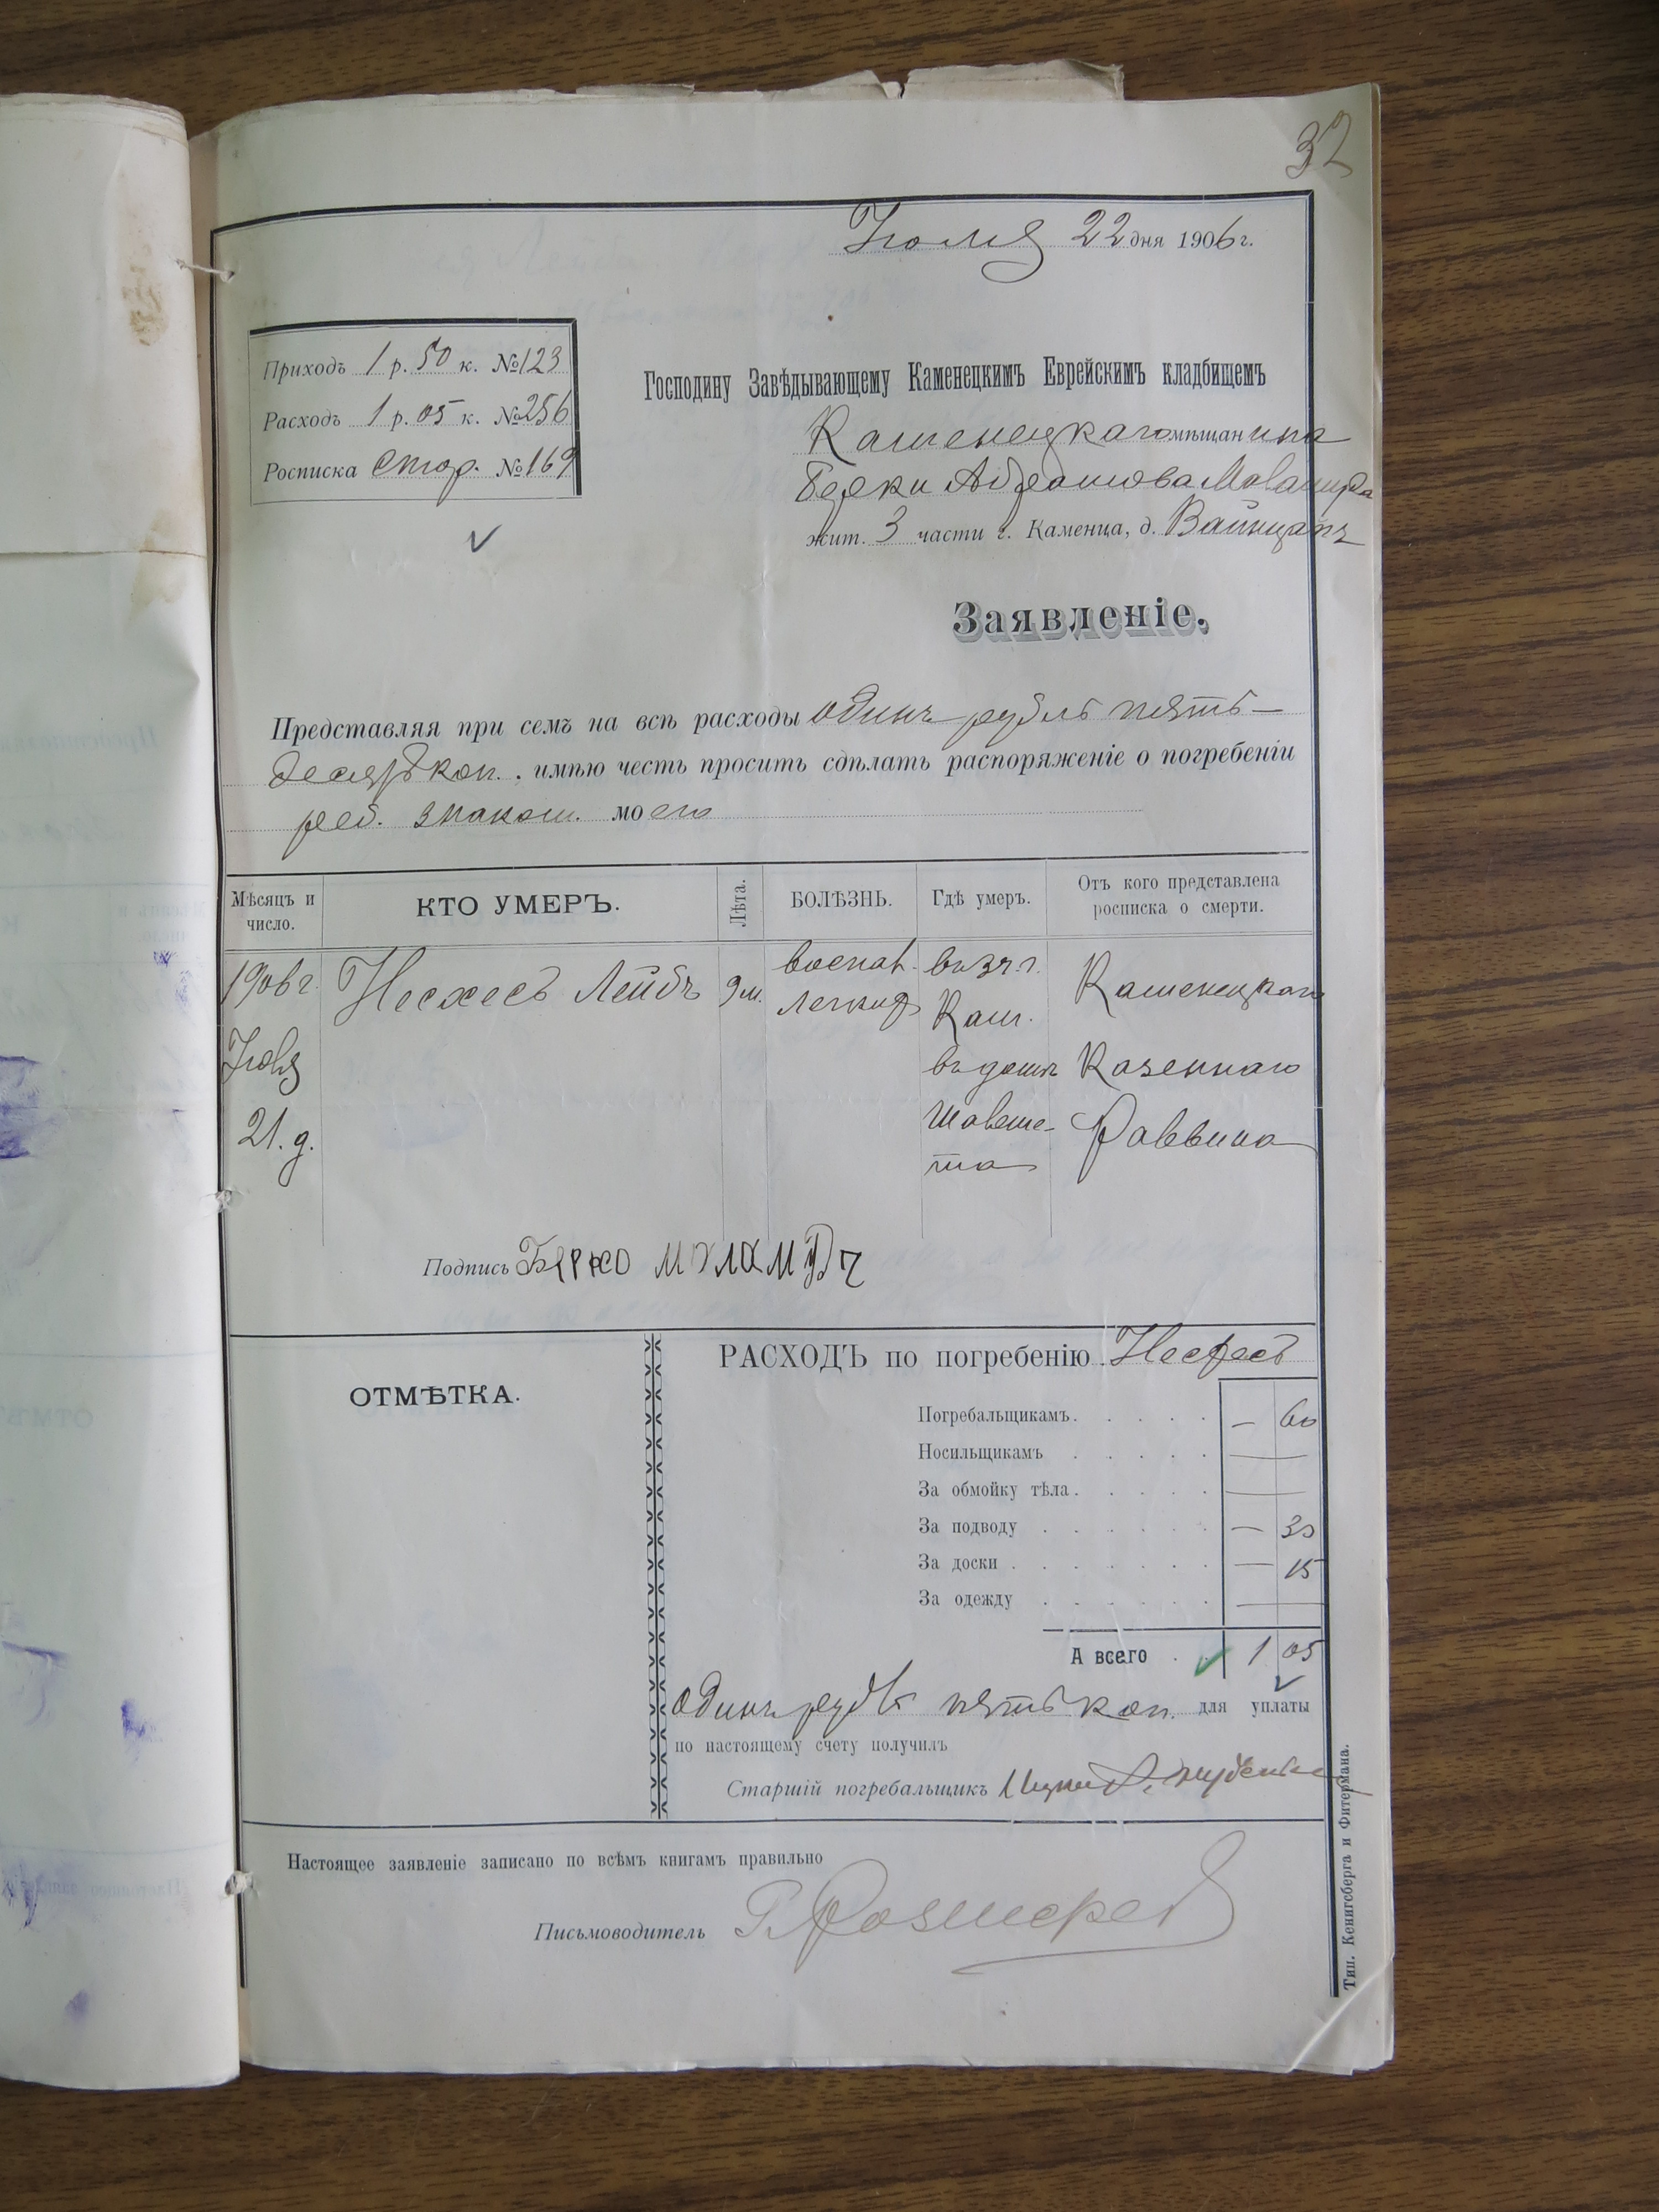 32
Іюля 22 дня 1906 г.
Приходъ 1 р. 50 к. №123
Расходъ 1 р. 05 к. №256
Росписка стор. №169
Господину Завѣдывающему Каменецкимъ Еврейскимъ кладбищемъ
Каменецкаго мѣщанина
Берки Абрамова
жит. 3 части г. Каменца, д. Вайнцапъ
Заявленіе.
Представляя при семъ на всѣ расходы одинъ рубль пять-
десятъ коп. имѣю честь просить сдѣлать распоряженіе о погребеніи
реб. знаком. моего
Мѣсяцъ и число.
КТО УМЕРЪ.
Лѣта.
БОЛѢЗНЬ.
Гдѣ умеръ.
Отъ кого представлена росписка о смерти.
1906 г. Іюля 21. д.
Несхесъ Лейбъ
9 м.
воспал. легкихъ
въ 3 ч. г. Кам. въ домѣ
Каменецкаго Казеннаго Раввина
Подпись Берко Маламудъ
ОТМѢТКА.
РАСХОДЪ по погребенію Несхесъ
Погребальщикамъ. — 60
Носильщикамъ —
За обмойку тѣла. —
За подводу — 30
За доски — 15
За одежду —
А всего 1 05
одинъ рубль пять коп. для уплаты
по настоящему счету получилъ
Старшій погребальщикъ
Настоящее заявленіе записано по всѣмъ книгамъ правильно
Письмоводитель
Тип. Кенигсберга и Фитермана.